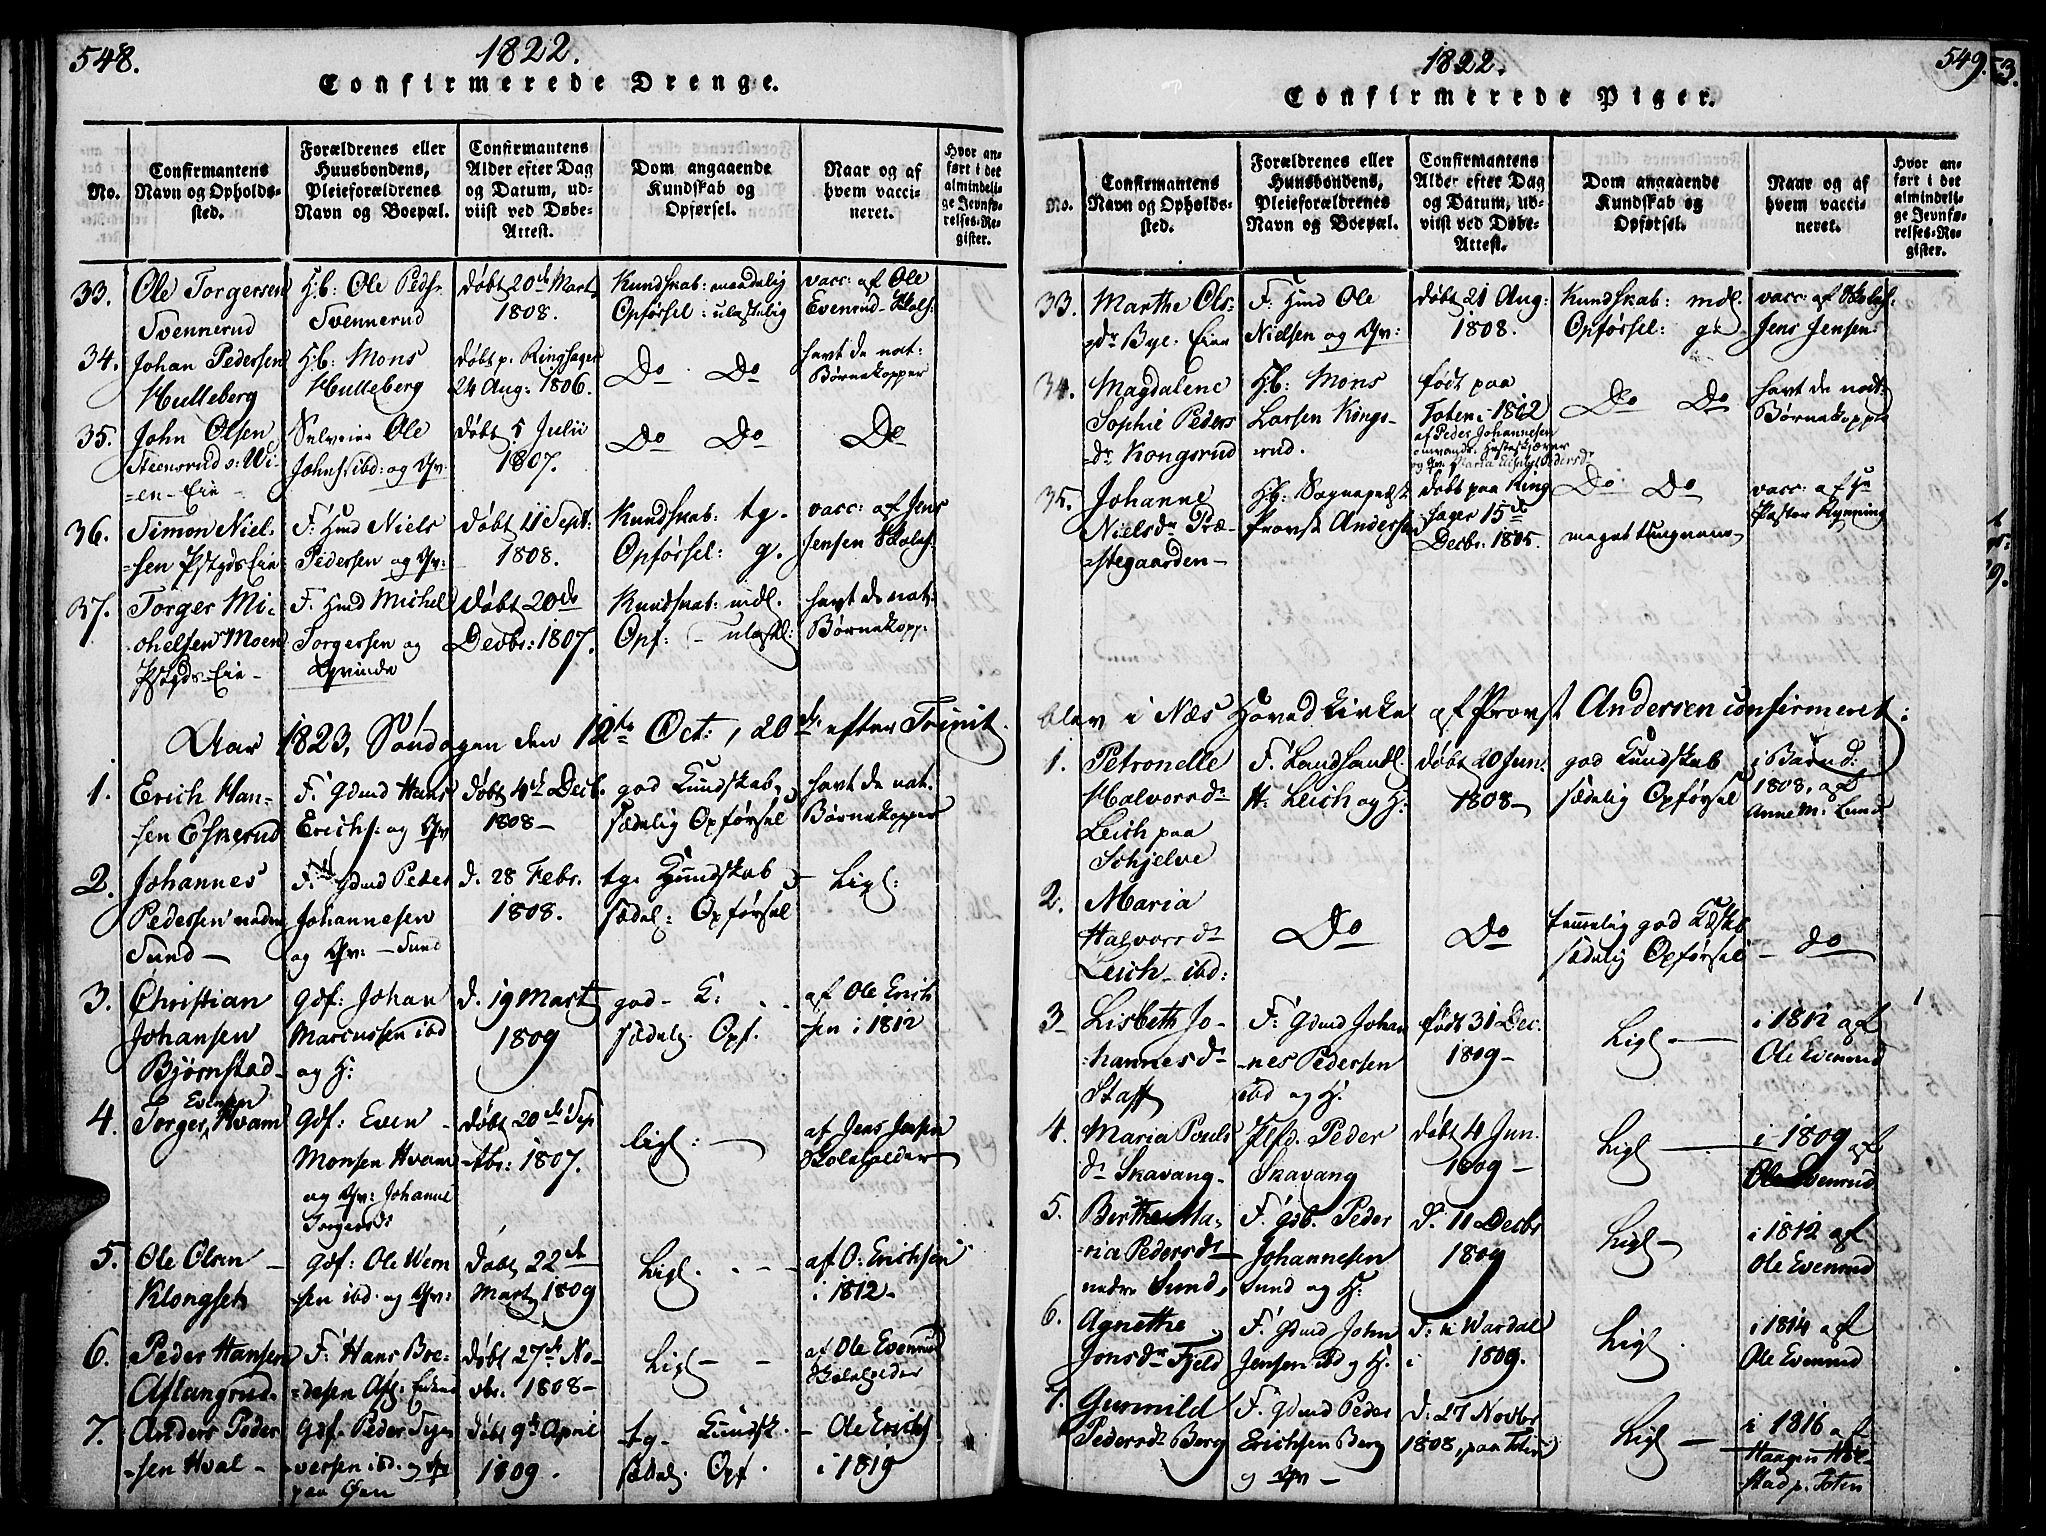 548.
1822.
Confirmerede Drenge.
No.
Confirmantens
Navn og Opholds-
sted.
Forældrenes eller
Huusbondens,
Pleieforældrenes
Navn og Boepæl.
Confirmantens
Alder efter Dag
og Datum, ud-
viist ved Døbe-
Attest.
Dom angaaende
Kundskab og
Opførsel.
Naar og af
hvem vacci-
neret.
Hvor an-
ført i det
almindeli-
ge Jevnfø-
relses-Re-
gister.
33.
Ole Torgersen
Svennerud
Hb: Ole Peds.
Svennerud
døbt 20de Marts
1808.
Kundskab: maadelig
Opførsel: ulastelig
vacc: af Ole
Evenrud
34.
Johan Pedersen
Hulleberg
Hb: Mons
Hulleberg
døbt p. Ringsager
24 Aug: 1806.
Do Do
havt de nat:
Børnekopper
35.
John Olsen
Steensrud
Eie
Selveier Ole
Johns. ibd: og Qv:
døbt 5 Julii
1807.
Do Do
Do
36.
Simon Niel-
sen Eie
F: Hmd Niels
Pedersen og Qv:
døbt 11 Sept:
1808.
Kundskab: tg.
Opførsel: g.
vacc: af Jens
Jensen Skoleh:
37.
Torger Mi-
chelsen Moen
Eie
F. Hmd Michel
Torgersen og
Qvinde
døbt 20de
Decbr: 1807.
Kundskab: mdl.
Opf: ulastl:
havt de nat:
Børnekopp:
Aar 1823, Søndagen den 12te Oct:, 20de efter Trinit.
1.
Erich Han-
sen Eskerud
F. Gdmd Hans
Erichs: og Qv
døbt 4de Decb.
1808
god Kundskab
sædelig Opførsel
havt de nat.
Børnekopper
2.
Johannes
Pedersen nedre
Sund
F. Gdmd Peder
Johannesen
og Qv: Sund
d. 28 Febr.
1808.
tg. Kundskab
sædel: Opførsel
Ligl:
3.
Christian
Johansen
Bjørnstad
Gdf: Johan
Marcussen ibd
og H:
d. 19 Marts
1809
god K:
sædelg. Opf.
af Ole Erich
sen i 1812
4.
Evensen
Torger Hvam
Gdf: Even
Monsen Hvam
og Qv: Johanne
Torgersds
døbt 20de Sep
tbr: 1807.
ligl:
af Jens Jensen
Skoleholder
5.
Ole Olsen
Klongseth
Gdf: Ole Wern
sen ibd. og Qv:
døbt 22de
Marts 1809
Ligl.
af O: Erichsen
i 1812
6.
Peder Hansen
Aslangrud
F. Hans Bre-
desen Asl:
døbt 27de No-
vbr. 1808
Ligl
af Ole Evenrud
Skoleholder
7.
Anders Peder
sen Hval
Gdf. Peder
ibd. og Qv
paa Øen
døbt 9de April
1809.
tg. Kundsk.
sædel. Opf.
Ole Erichs
i 1819
549.
1822.
Confirmerede Piger.
No.
Confirmantens
Navn og Opholds-
sted.
Forældrenes eller
Huusbondens,
Pleieforældrenes
Navn og Boepæl.
Confirmantens
Alder efter Dag
og Datum, ud-
viist ved Døbe-
Attest.
Dom angaaende
Kundskab og
Opførsel.
Naar og af
hvem vacci-
neret.
Hvor an-
ført i det
almindeli-
ge Jevnfø-
relses-Re-
gister.
33.
Marthe Ols-
dr Bye. Eie
F. Hmd Ole
Nielsen og Qv:
døbt 21 Aug:
1808.
Kundskab: mdl.
Opførsel: g.
vacc: af Skoleh.
Jens Jensen
34.
Magdalene
Sophie Peders
dr Kongsrud
Hb: Mons
Larsen Kongs-
rud.
født paa
Toten 1802
af Peder Johannesen
Do Do
havt de nat:
Børnekopper
35.
Johanne
Nielsdr Præ-
stegaarden
Hb: Sognepræst
Provst Andersen
døbt paa Ring
sager 15de
Decbr. 1805.
Do Do
meget tungnem
vacc: af Hr
Pastor Rynning
blev i Næs Hovedkirke af Provst Andersen confirmeret:
1.
Petronelle
Halvorsdr
Leich paa
Schjelve
F. Landhandl.
H. Leich og H:
døbt 20 Jun.
1808
god Kundskab
sædelig Opførsel
i Barnd:
1808, af
Anne M: Lund
2.
Maria
Halvorsdr
Leich ibd:
Do
Do
temmelig god Kdskb
sædelig Opførsel
do
3
Lisbeth Jo-
hannesdr
Staff
F. Gdmd Johan
nes Pedersen
ibd og H.
født 31 Dec.
1809
Ligl
i 1812 af
Ole Evenrud
4.
Maria Pouls
dr Skavang
Plfd. Peder
Skavang
døbt 4 Jun.
1809
Ligl
i 1809 af
Ole Evenrud
5.
Berthe Ma-
ria Pedersdr
nedre Sund
F. Gdb. Peder
Johannesen
Sund og H:
d. 11 Decbr
1809
Ligl
i 1812 af
Ole Evenrud
6.
Agnethe
Jonsdr Fjeld
F. Gdmd John
Jensen ibd og H.
F: i Wardal
i 1809.
Ligl
i 1814 af
Ole Evenrud
7.
Gunnild
Pedersdr Berg
F. Gdmd Peder
Erichsen Berg
og Qv
d: 27 Novbr
1808, paa Toten
Ligl
i 1816 af
Haagen Høl-
stad p. Toten